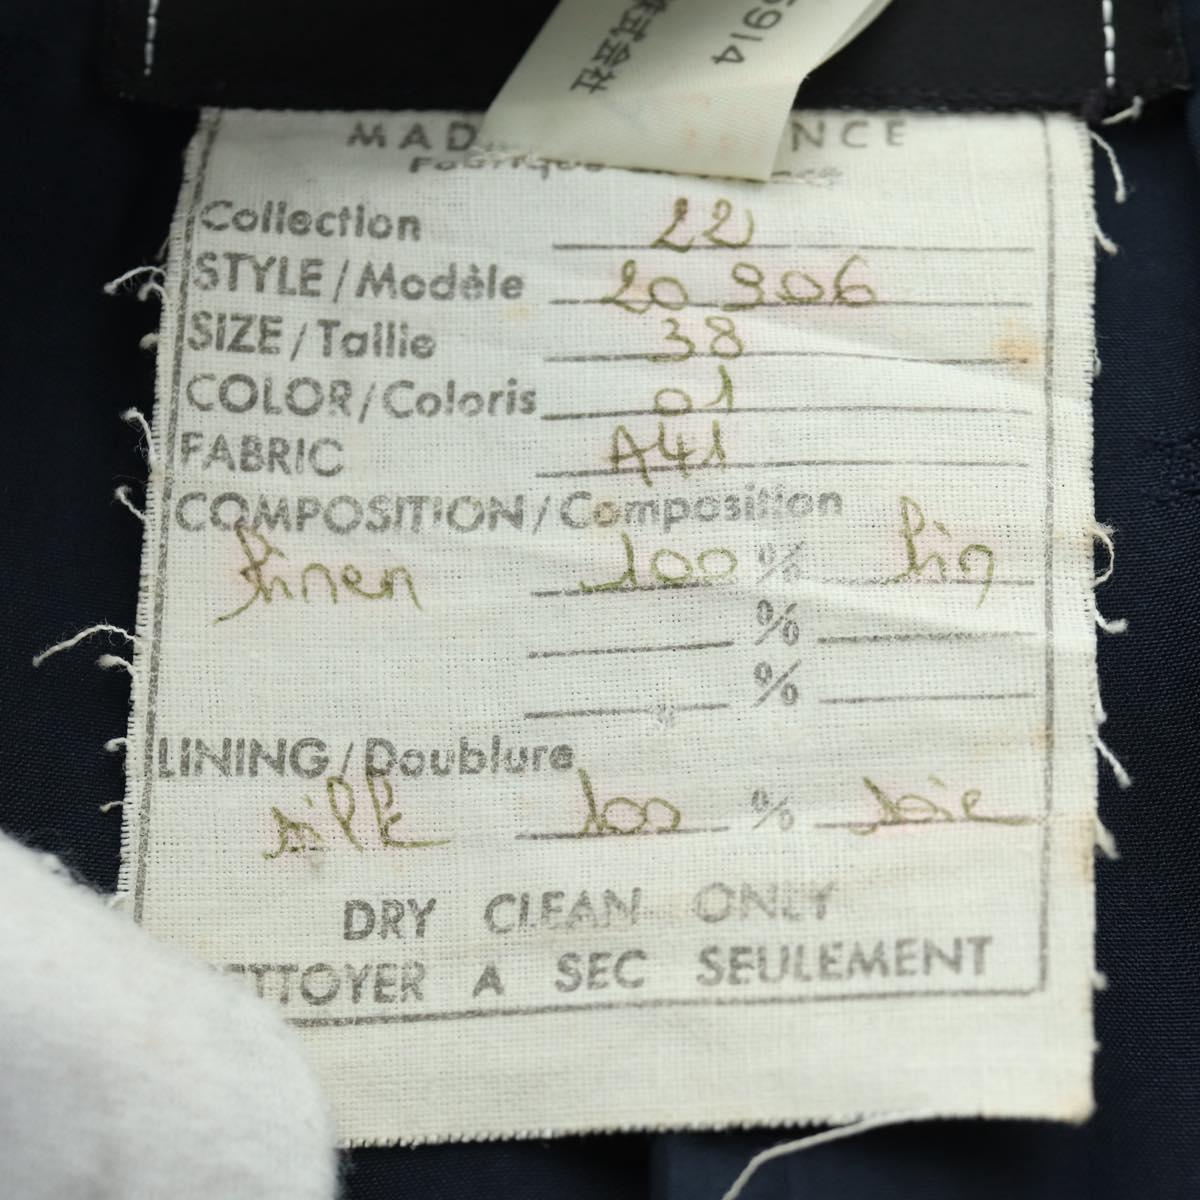 5914
株式会社
MAD NCE
Fabrique
Collection 22
STYLE/Modèle 20 906
SIZE/Taille 38
COLOR/Coloris 01
FABRIC A41
COMPOSITION/Composition
Linen 100 % Lin
%
%
LINING/Doublure
silk 100 % soie
DRY CLEAN ONLY
ETTOYER A SEC SEULEMENT